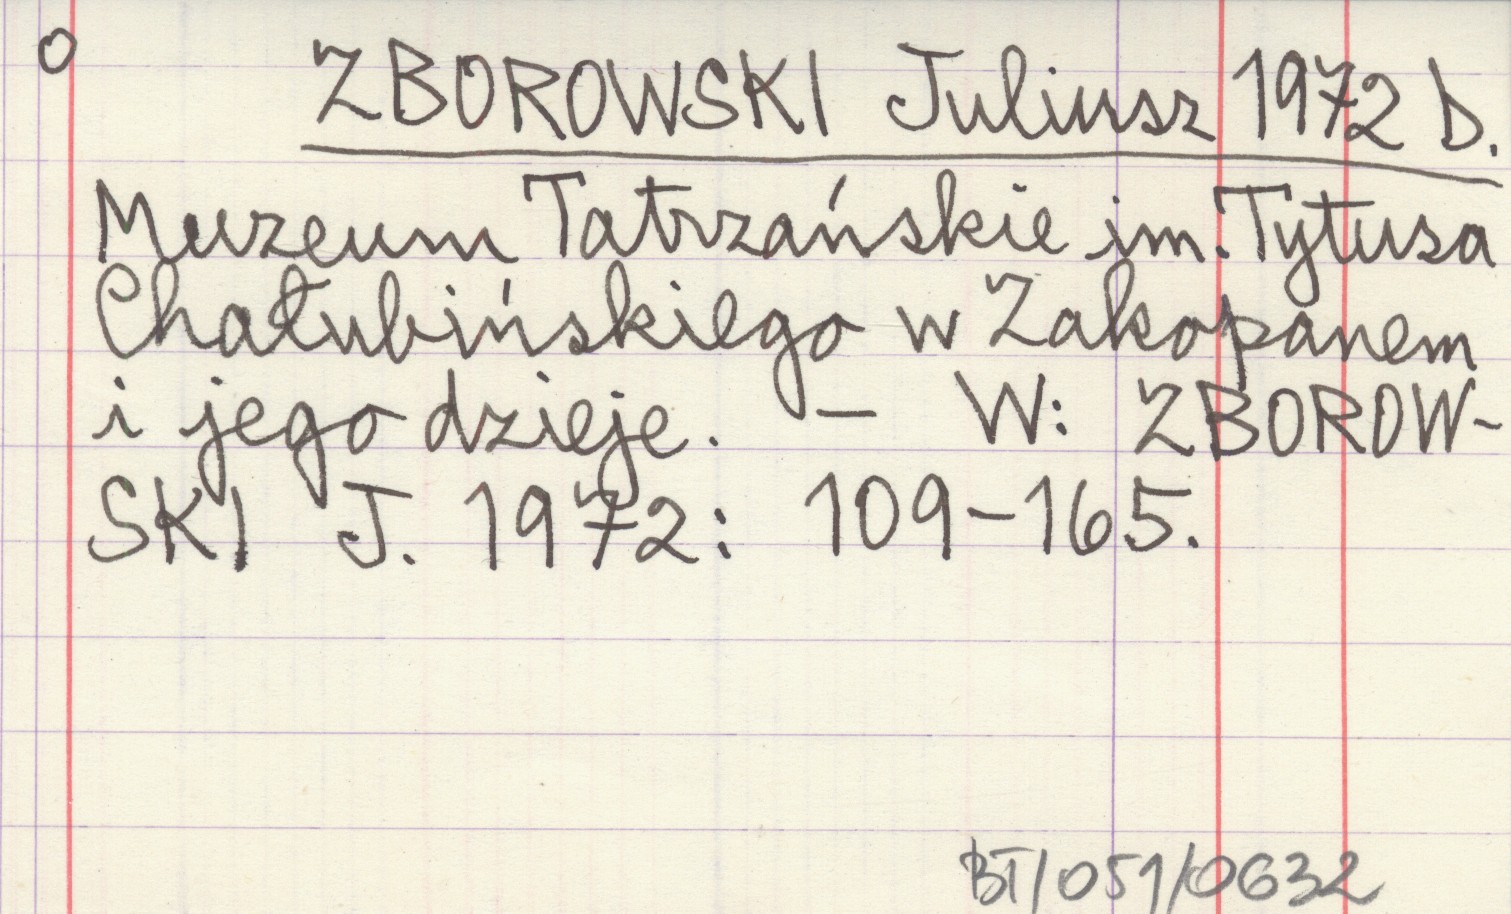 O ZBOROWSKI Juliusz 1972 D.
Muzeum Tatrzańskie im. Tytusa
Chałubińskiego w Zakopanem
i jego dzieje. — W: ZBOROW-
SKI J. 1972: 109-165.
BT/051/0632